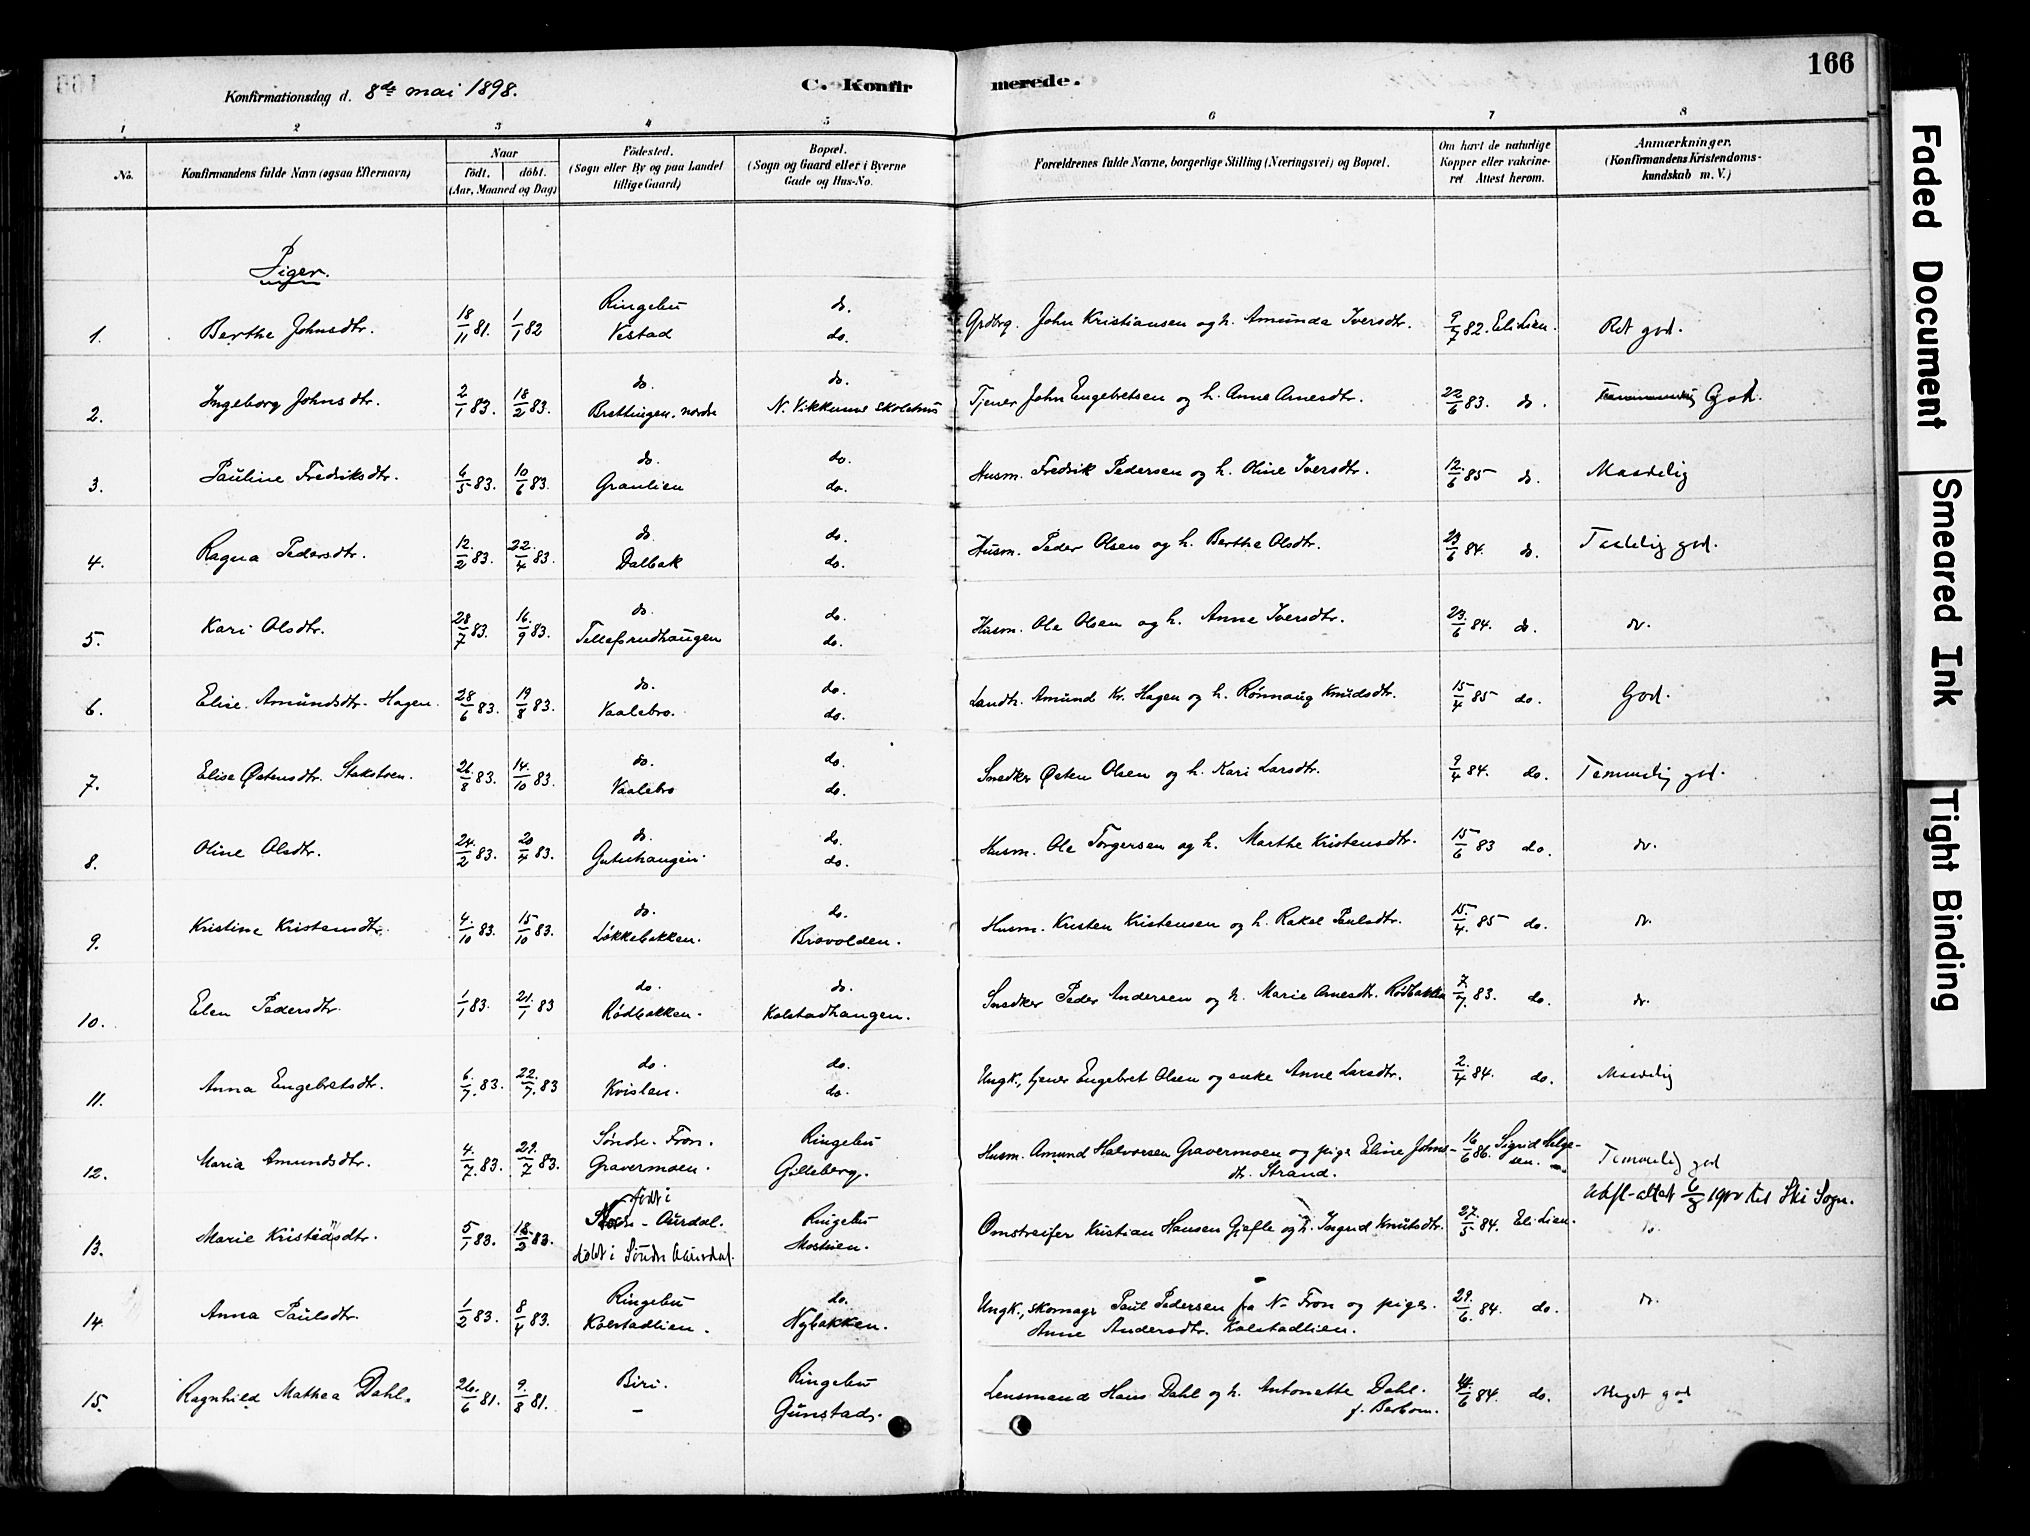 166
Konfirmationsdag d. 8de mai 1898.
C. Konfirmerede.
1 2 3 4 5 6 7 8
No.
Konfirmandens fulde Navn (ogsaa Efternavn)
Naar
födt. döbt.
(Aar, Maaned og Dag)
Födested.
(Sogn eller By og paa Landet
tillige Gaard)
Bopæl.
(Sogn og Gaard eller i Byerne
Gade og Hus-No.
Forældrenes fulde Navne, borgerlige Stilling (Næringsvei) og Bopæl.
Om havt de naturlige
Kopper eller vakcine-
ret Attest herom.
Anmærkninger.
(Konfirmandens Kristendoms-
kundskab m. V.)
Piger.
1. Berthe Johnsdtr. 18/11 81. 1/1 82 Ringebu Vestad do. do. Grdbrg. John Kristiansen og h. Amunda Iversdtr. 9/7 82. Eli Lien. Ret god.
2. Ingeborg Johnsdtr. 2/1 83. 18/2 83. do. Brettingen nordre do. N. Vikkumö Skolehus Tjener John Engebretsen og h. Anne Arnesdtr. 22/6 83. do. God.
3. Pauline Fredriksdtr. 6/5 83. 10/6 83. do. Granlien do. do. Husm. Fredrik Pedersen og h. Oline Iversdtr. 12/6 85 do. Maadelig
4. Ragna Pedersdtr. 12/2 83. 22/4 83. do. Dalbak do. do. Husm. Peder Olsen og h. Berthe Olsdtr. 23/6 84. do. Taalelig god.
5. Kari Olsdtr. 28/7 83. 16/9 83. do. Tellefsrudhaugen do. do. Husm. Ole Olsen og h. Anne Iversdtr. 23/6 84. do. do.
6. Elise Amundsdtr. Hagen. 28/6 83. 19/8 83. do. Vaalebro. do. do. Landh. Amund Kr. Hagen og h. Rønnaug Knudsdtr. 15/4 85 do. God.
7. Elise Østensdtr. Stakstoen. 26/8 83. 14/10 83. do. Vaalebro do. do. Snedker Østen Olsen og h. Kari Larsdtr. 9/4 84. do. Temmelig god.
8. Oline Olsdtr. 24/2 83. 20/4 83. do. Gutuhaugen. do. do. Husm. Ole Torgersen og h. Marthe Kristensdtr. 15/6 83 do. do.
9. Kristine Kristensdtr. 4/10 83. 15/10 83. do. Løkkebakken. do. Brovolden. Husm. Kristen Kristensen og h. Rakel Paulsdtr. 15/4. 85 do. do.
10. Elen Pedersdtr. 1/1 83. 21/1 83 do. Rødbakken. do. Kolstadhaugen. Snedker Peder Andersen og h. Marie Arnesdtr. Rødbakken 7/7. 83. do. do.
11. Anna Engebretsdtr. 6/7. 83. 22/7. 83 do. Kvislen. do. do. Ungk., tjener Engebret Olsen og enke Anne Larsdtr. 2/4 84. do. Maadelig
12. Maria Amundsdtr. 4/7. 83. 29/7 83. Søndre Fron. Gravermoen. Ringebu Gilleberg. Husm. Amund Halvorsen Gravermoen og pige Eline Johns-
dtr. Strand. 16/6 86. Sigrid Helge-
sen. Temmelig god
Udfl-attest 6/3 1900 til Ski Sogn.
13. Marie Kristiansdtr. 5/1 83. 18/2 83. født i Nordre-Aurdal.
døbt i Søndre Aurdal. Ringebu Moshien. Omstreifer Kristian Hansen Gjefle og h. Ingrid Knutsdtr. 27/5 84. Eli Lien. do.
14. Anna Paulsdtr. 1/2 83. 8/4 83. Ringebu Kolstadlien. do. Nybakken. Ungk., skomagr Paul Pedersen fra N. Fron og pige
Anne Andersdtr. Kolstadlien. 29/6. 84. do. do.
15. Ragnhild Mathea Dahl. 26/6 81. 9/8 81. Biri. - Ringebu Gunstad. Lensmand Hans Dahl og h. Antonette Dahl.
f. Berbom. 14/6 84. do. Meget god
Faded Document
Smeared Ink
Tight Binding